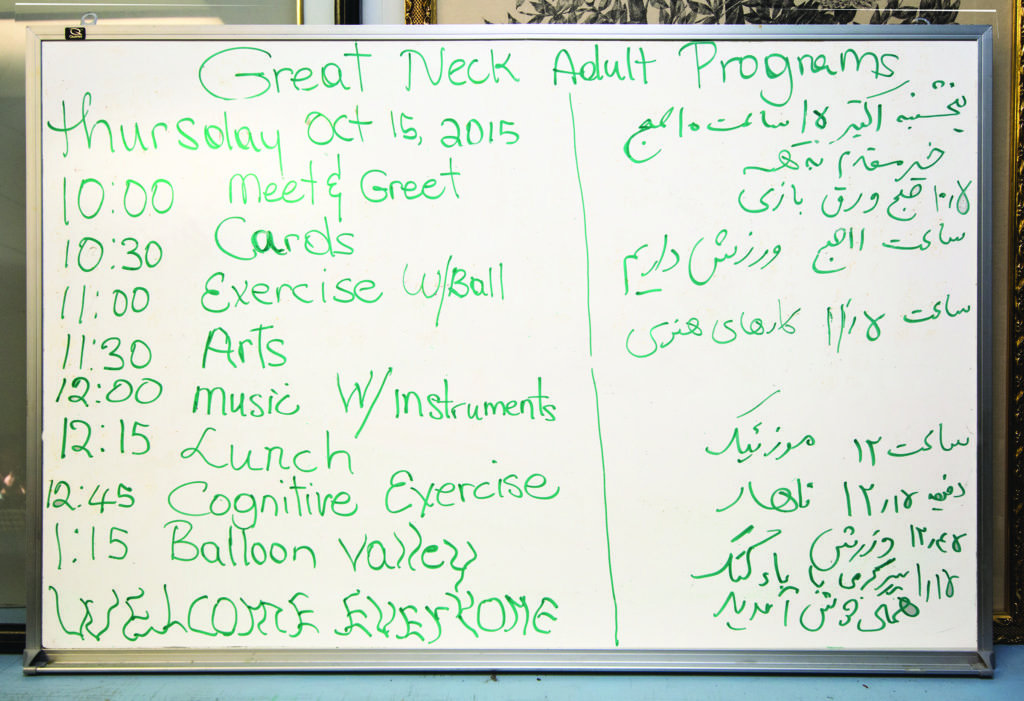 Great Neck Adult Programs
Thursday Oct 15, 2015
10:00 Meet & Greet
10:30 Cards
11:00 Exercise W/Ball
11:30 Arts
12:00 music W/Instruments
12:15 Lunch
12:45 Cognitive Exercise
1:15 Balloon valley
WELCOME EVERYONE
پنجشنبه اکتبر ۱۵ ساعت ۱۰ صبح
خیر مقدم به همه
۱۰٫۱۵ صبح ورق بازی
ساعت ۱۱ صبح ورزش داریم
ساعت ۱۱٫۱۵ کارهای هنری
ساعت ۱۲ موزئیک
دقیقه ۱۲٫۱۵ ناهار
۱۲٫۴۵ ورزش
۱٫۱۵ سرگرمی با بادکنک
همگی خوش آمدید